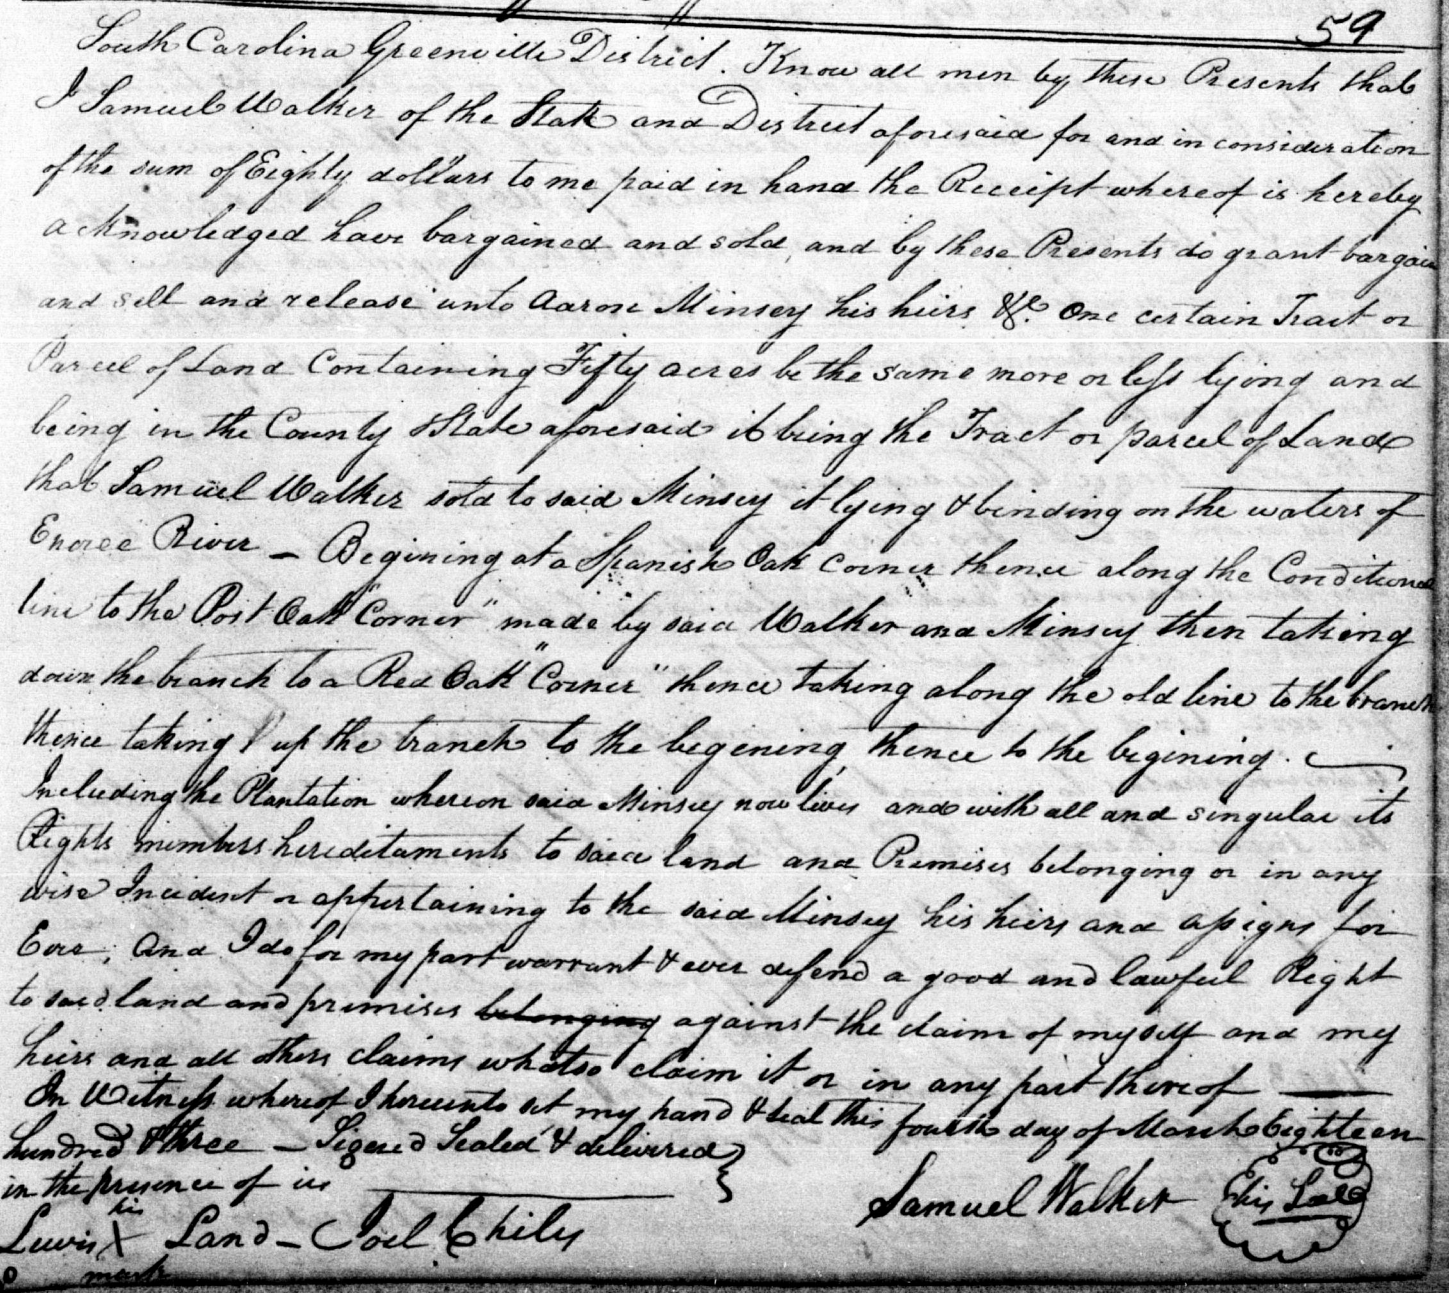 59
South Carolina Greenville District. Know all men by these Presents that
I Samuel Walker of the State and District aforesaid for and in consideration
of the sum of Eighty dollars to me paid in hand the Receipt whereof is hereby
acknowledged have bargained and sold, and by these Presents do grant bargain
and sell and release unto Aaron Minsey his heirs &c. One certain Tract or
Parcel of Land Containing Fifty acres be the same more or less lying and
being in the County & State aforesaid it being the Tract or parcel of Land
that Samuel Walker sold to said Minsey it lying & binding on the waters of
Enoree River — Begining at a Spanish Oak corner thence along the Conditional
line to the Post Oak "Corner" made by said Walker and Minsey then taking
down the branch to a Red Oak "Corner" thence taking along the old line to the branch
thence taking up the branch to the begening, thence to the begining.
Including the Plantation whereon said Minsey now lives and with all and singular its
Rights members hereditaments to said land and Premises belonging or in any
wise Incident or appertaining to the said Minsey his heirs and assigns for
Ever, And I do for my part warrant & ever defend a good and lawful Right
to said land and premises belonging against the claim of myself and my
heirs and all others claims whatso claim it or in any part thereof —
In Witness whereof I hereunto set my hand & seal this fourth day of March Eighteen
hundred & three — Signed Sealed & delivered
in the presence of us
Samuel Walker His Seal
his
Lewis X Land — Joel Chiles
mark